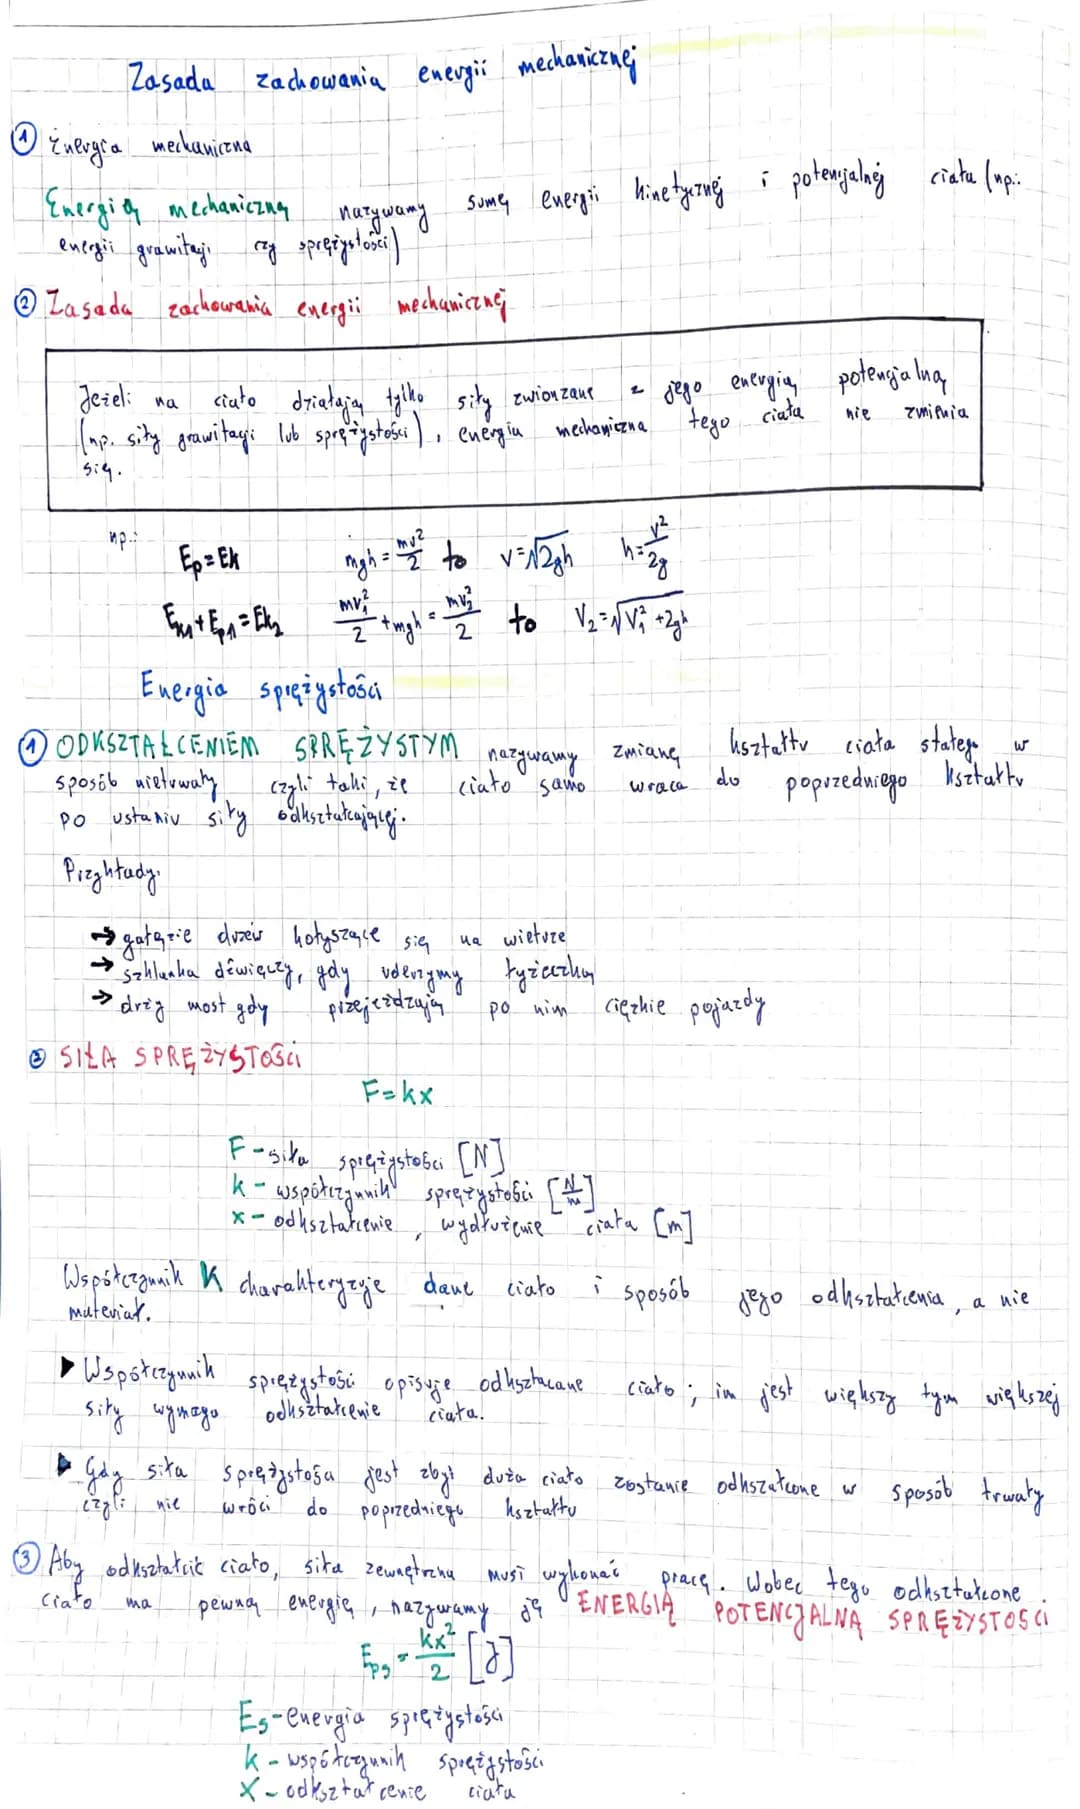 Zasada zachowania energii mechanicznej
① Energia mechaniczna
Energią mechaniczną nazywamy sumę energii kinetycznej i potencjalnej ciała (np.:
energii grawitacji czy sprężystości)
② Zasada zachowania energii mechanicznej
Jeżeli na ciało działają tylko siły zwionzane z jego energią potencjalną
(np. siły grawitacji lub sprężystości), energia mechaniczna tego ciała nie zmienia
się.
np.:
Ep=Ek mgh = mv²/2 to v=√2gh h=v²/2g
Ek1+Ep1=Ek2 mv₁²/2 +mgh = mv₂²/2 to V₂=√V₁²+2gh
Energia sprężystości
① ODKSZTAŁCENIEM SPRĘŻYSTYM nazywamy zmianę kształtu ciała stałego w
sposób nietrwały czyli taki, że ciało samo wraca do poprzedniego kształtu
po ustaniu siły odkształcającej.
Przykłady:
→ gałęzie drzew kołyszące się na wietrze
→ szklanka dźwięczy, gdy uderzymy łyżeczką
→ drży most gdy przejeżdzają po nim ciężkie pojazdy
② SIŁA SPRĘŻYSTOŚCI
F=kx
F - siła sprężystości [N]
k - współczynnik sprężystości [N/m]
x - odkształcenie, wydłużenie ciała [m]
Współczynnik K charakteryzuje dane ciało i sposób jego odkształcenia, a nie
materiał.
▶ Współczynnik sprężystości opisuje odkształcane ciało; im jest większy tym większej
siły wymaga odkształcenie ciała.
▶ Gdy siła sprężystośa jest zbyt duża ciało zostanie odkszałcone w sposób trwały
czyli nie wróci do poprzedniego kształtu
③ Aby odkształcić ciało, siła zewnętrzna musi wykonać pracę. Wobec tego odkształcone
ciało ma pewną energię, nazywamy ją ENERGIĄ POTENCJALNĄ SPRĘŻYSTOŚCI
Eps = kx²/2 [J]
Es - energia sprężystości
k - współczynnik sprężystości
X - odkształcenie ciała